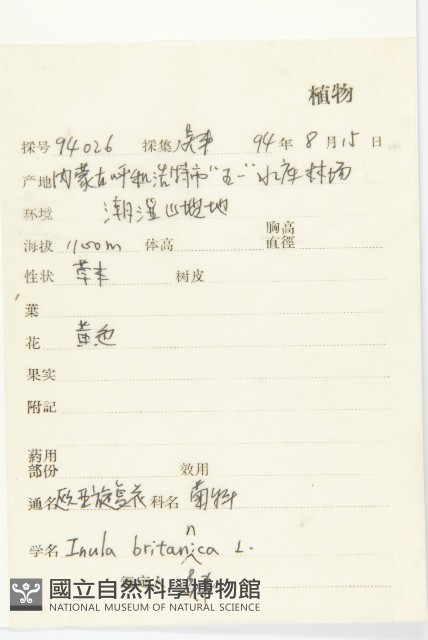 植物
採号 94026 採集人 94年 8月 15日
产地 内蒙古呼和浩特市"五一"水库林场
环境 潮湿山坡地
海拔 1100m 体高 胸高直徑
性状 草本 树皮
葉
花 黄色
果实
附記
葯用部份 效用
通名 欧亚旋复花 科名 菊科
学名 Inula britannica L.
鑑定人
國立自然科學博物館
NATIONAL MUSEUM OF NATURAL SCIENCE